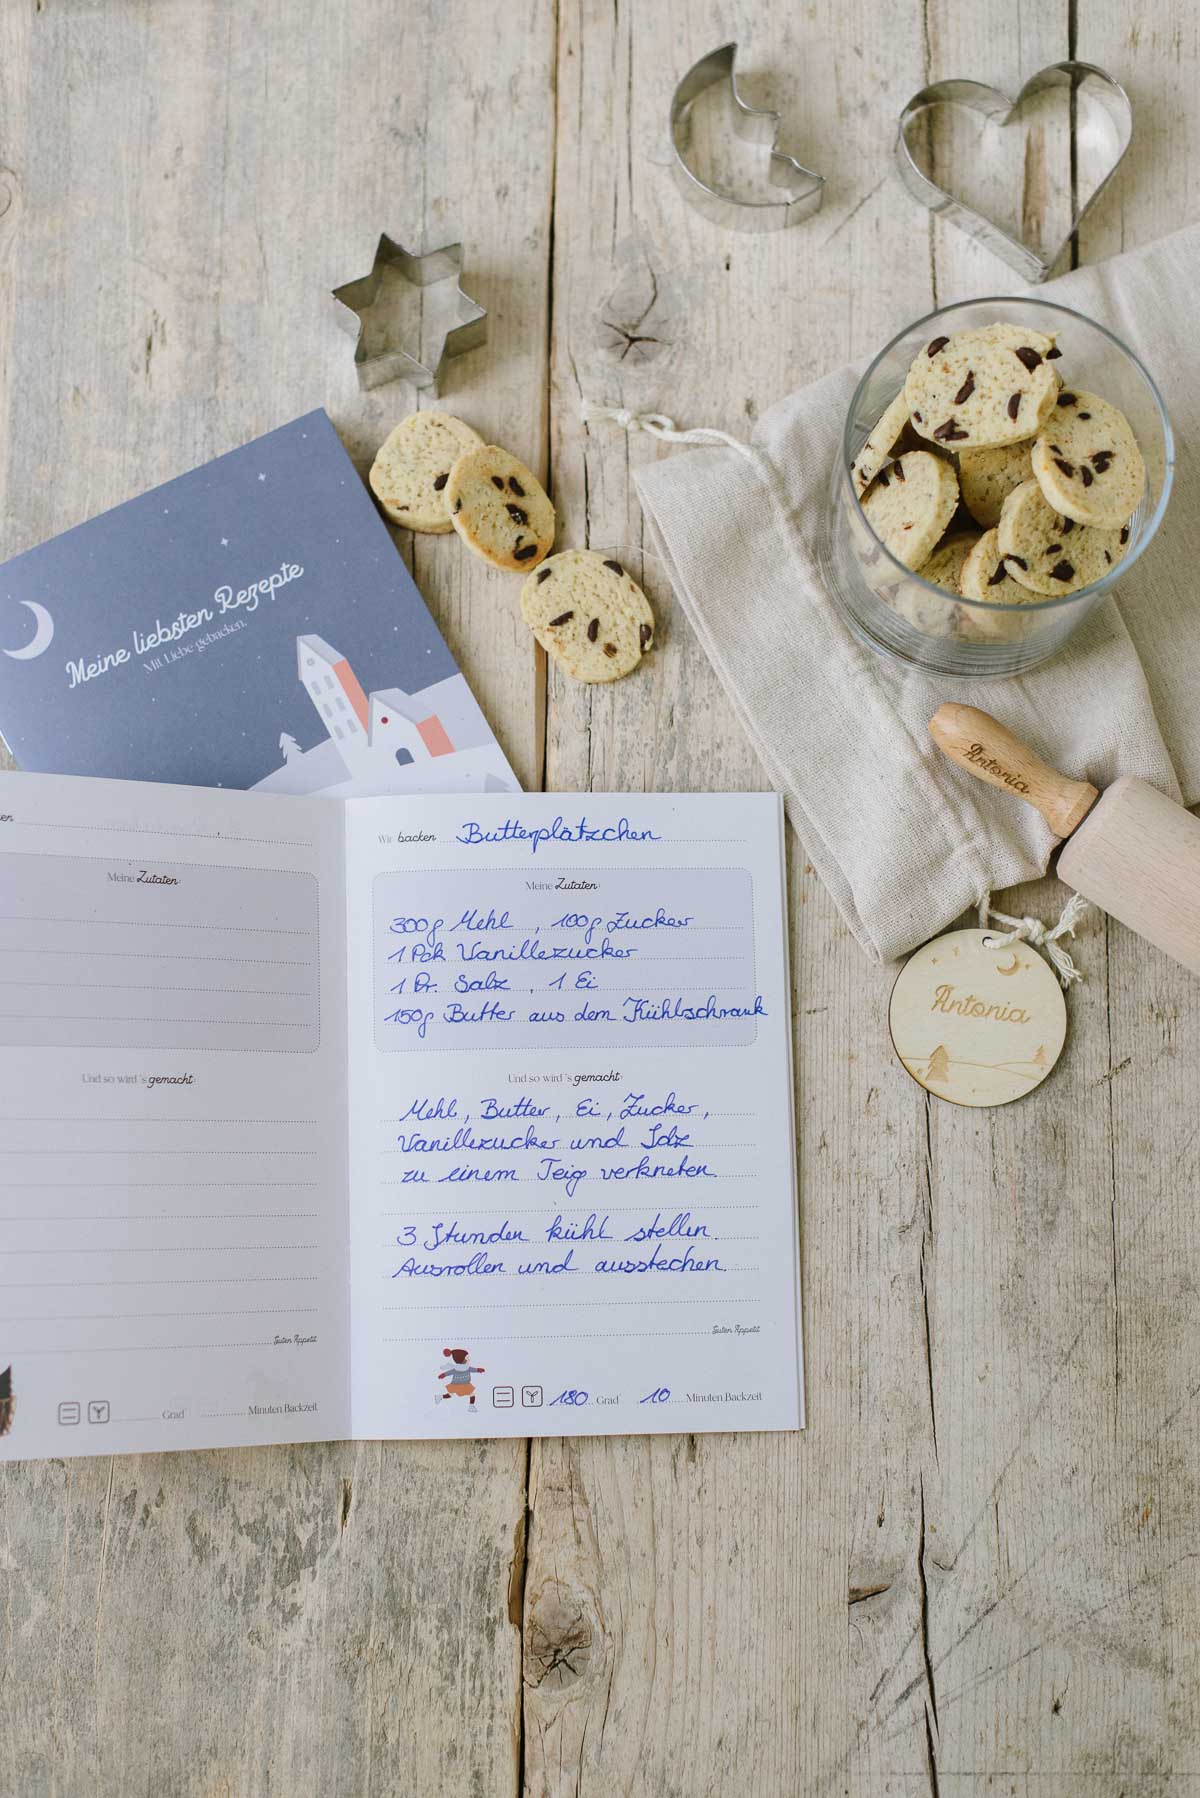 Meine liebsten Rezepte
Mit Liebe gebacken.
Antonia
Antonia
Meine Zutaten:
Und so wird's gemacht:
Guten Appetit
Grad° Minuten Backzeit
Wir backen Butterplätzchen
Meine Zutaten:
300g Mehl , 100g Zucker
1 Pck Vanillezucker
1 Pr. Salz , 1 Ei
150g Butter aus dem Kühlschrank
Und so wird's gemacht:
Mehl, Butter, Ei, Zucker,
Vanillezucker und Salz
zu einem Teig verkneten.
3 Stunden kühl stellen.
Ausrollen und ausstechen.
Guten Appetit
180 Grad° 10 Minuten Backzeit